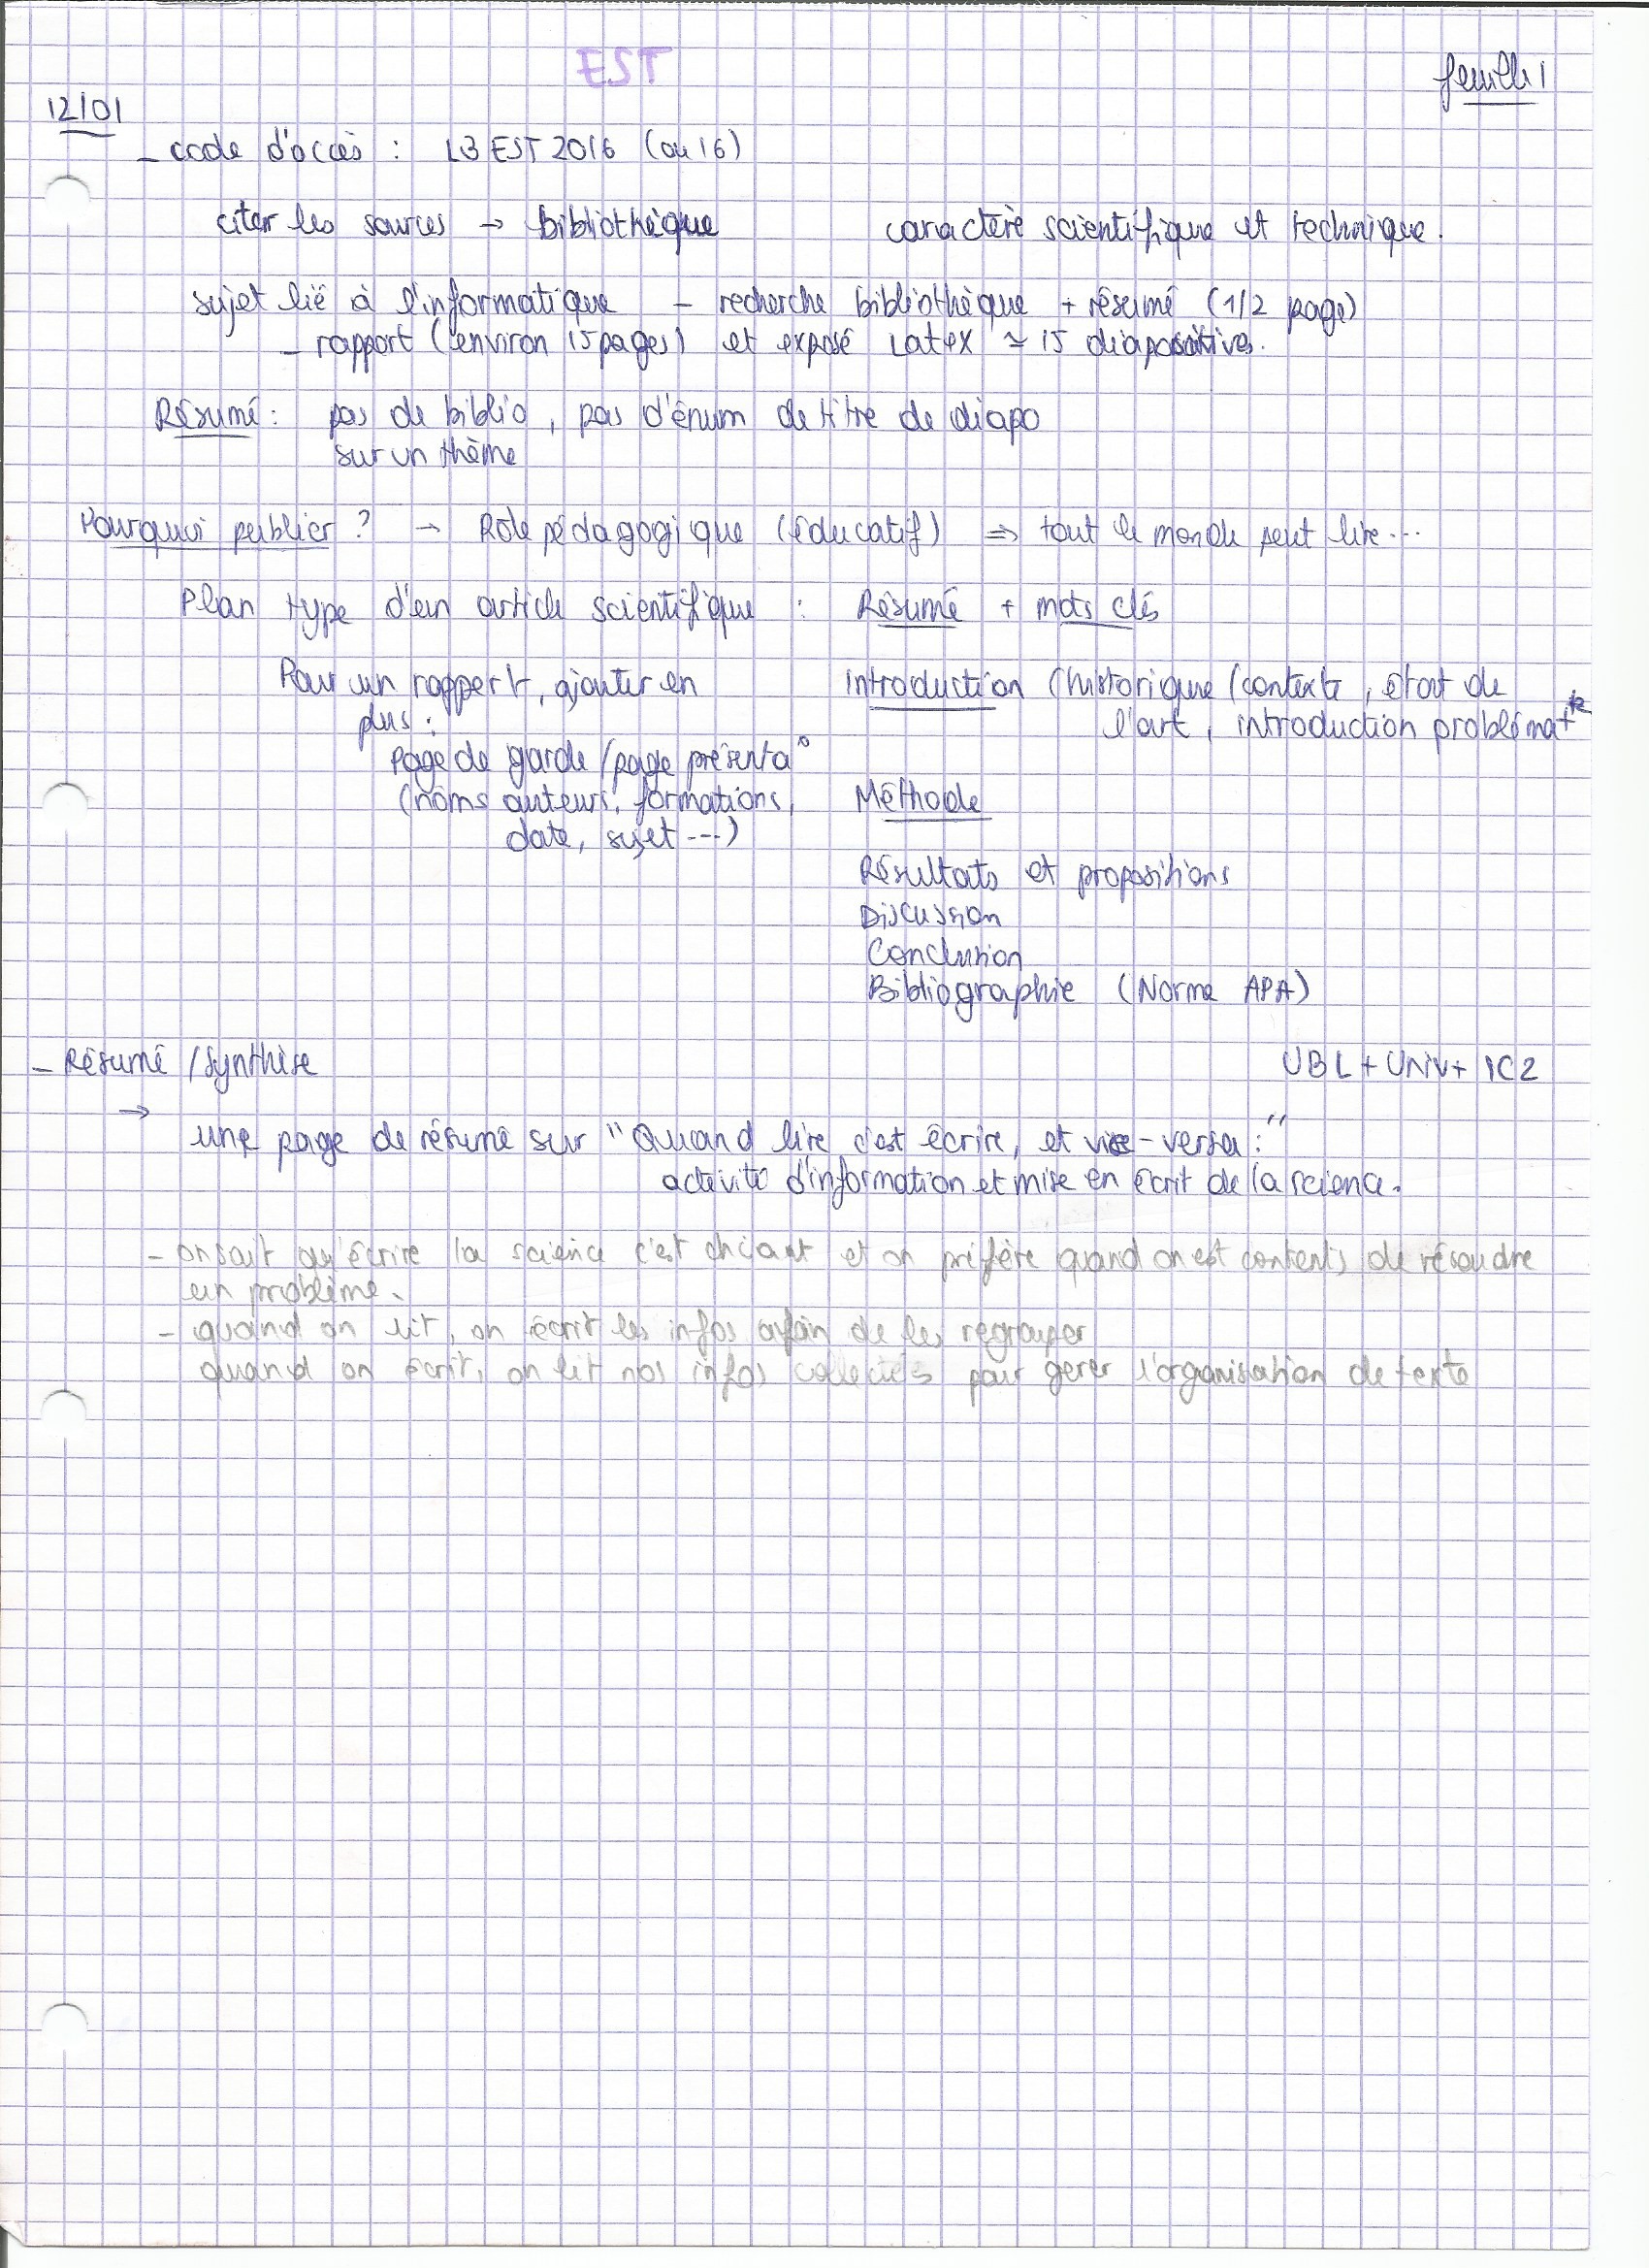 EST
feuille 1
12/01
- code d'accès : L3 EST 2016 (ou 16)
citer les sources → bibliothèque
caractère scientifique et technique.
sujet lié à l'informatique - recherche bibliothèque + résumé (1/2 page)
- rapport (environ 15 pages) et exposé Latex ≃ 15 diapositives.
Résumé : pas de biblio, pas d'énum de titre de diapo
sur un thème
Pourquoi publier ? → Rôle pédagogique (éducatif) ⇒ tout le monde peut lire...
Plan type d'un article scientifique : Résumé + mots clés
Pour un rapport, ajouter en
plus :
Page de garde / page présenta°
(noms auteurs, formations,
date, sujet ---)
Introduction (historique (contexte, état de
l'art, introduction problémat
Méthode
Résultats et propositions
Discussion
Conclusion
Bibliographie (Norme APA)
- Résumé / Synthèse
UBL + UNIV + IC2
→
une page de résumé sur "Quand lire c'est écrire, et vice-versa :"
activité d'information et mise en écrit de la science.
- on sait qu'écrire la science c'est chiant et on préfère quand on est contents de résoudre
un problème.
- quand on lit, on écrit les infos afin de les regrouper
quand on écrit, on lit nos infos collectées pour gérer l'organisation de texte